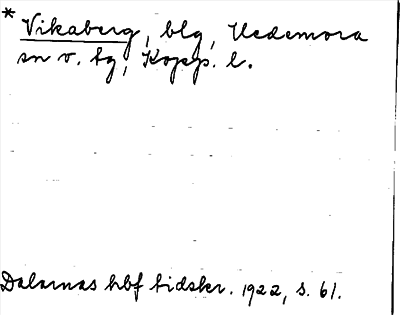 * Vikaberg, blg, Hedemora
sn v. tg, Kopp. l.
Dalarnas hbf tidskr. 1922, s. 61.